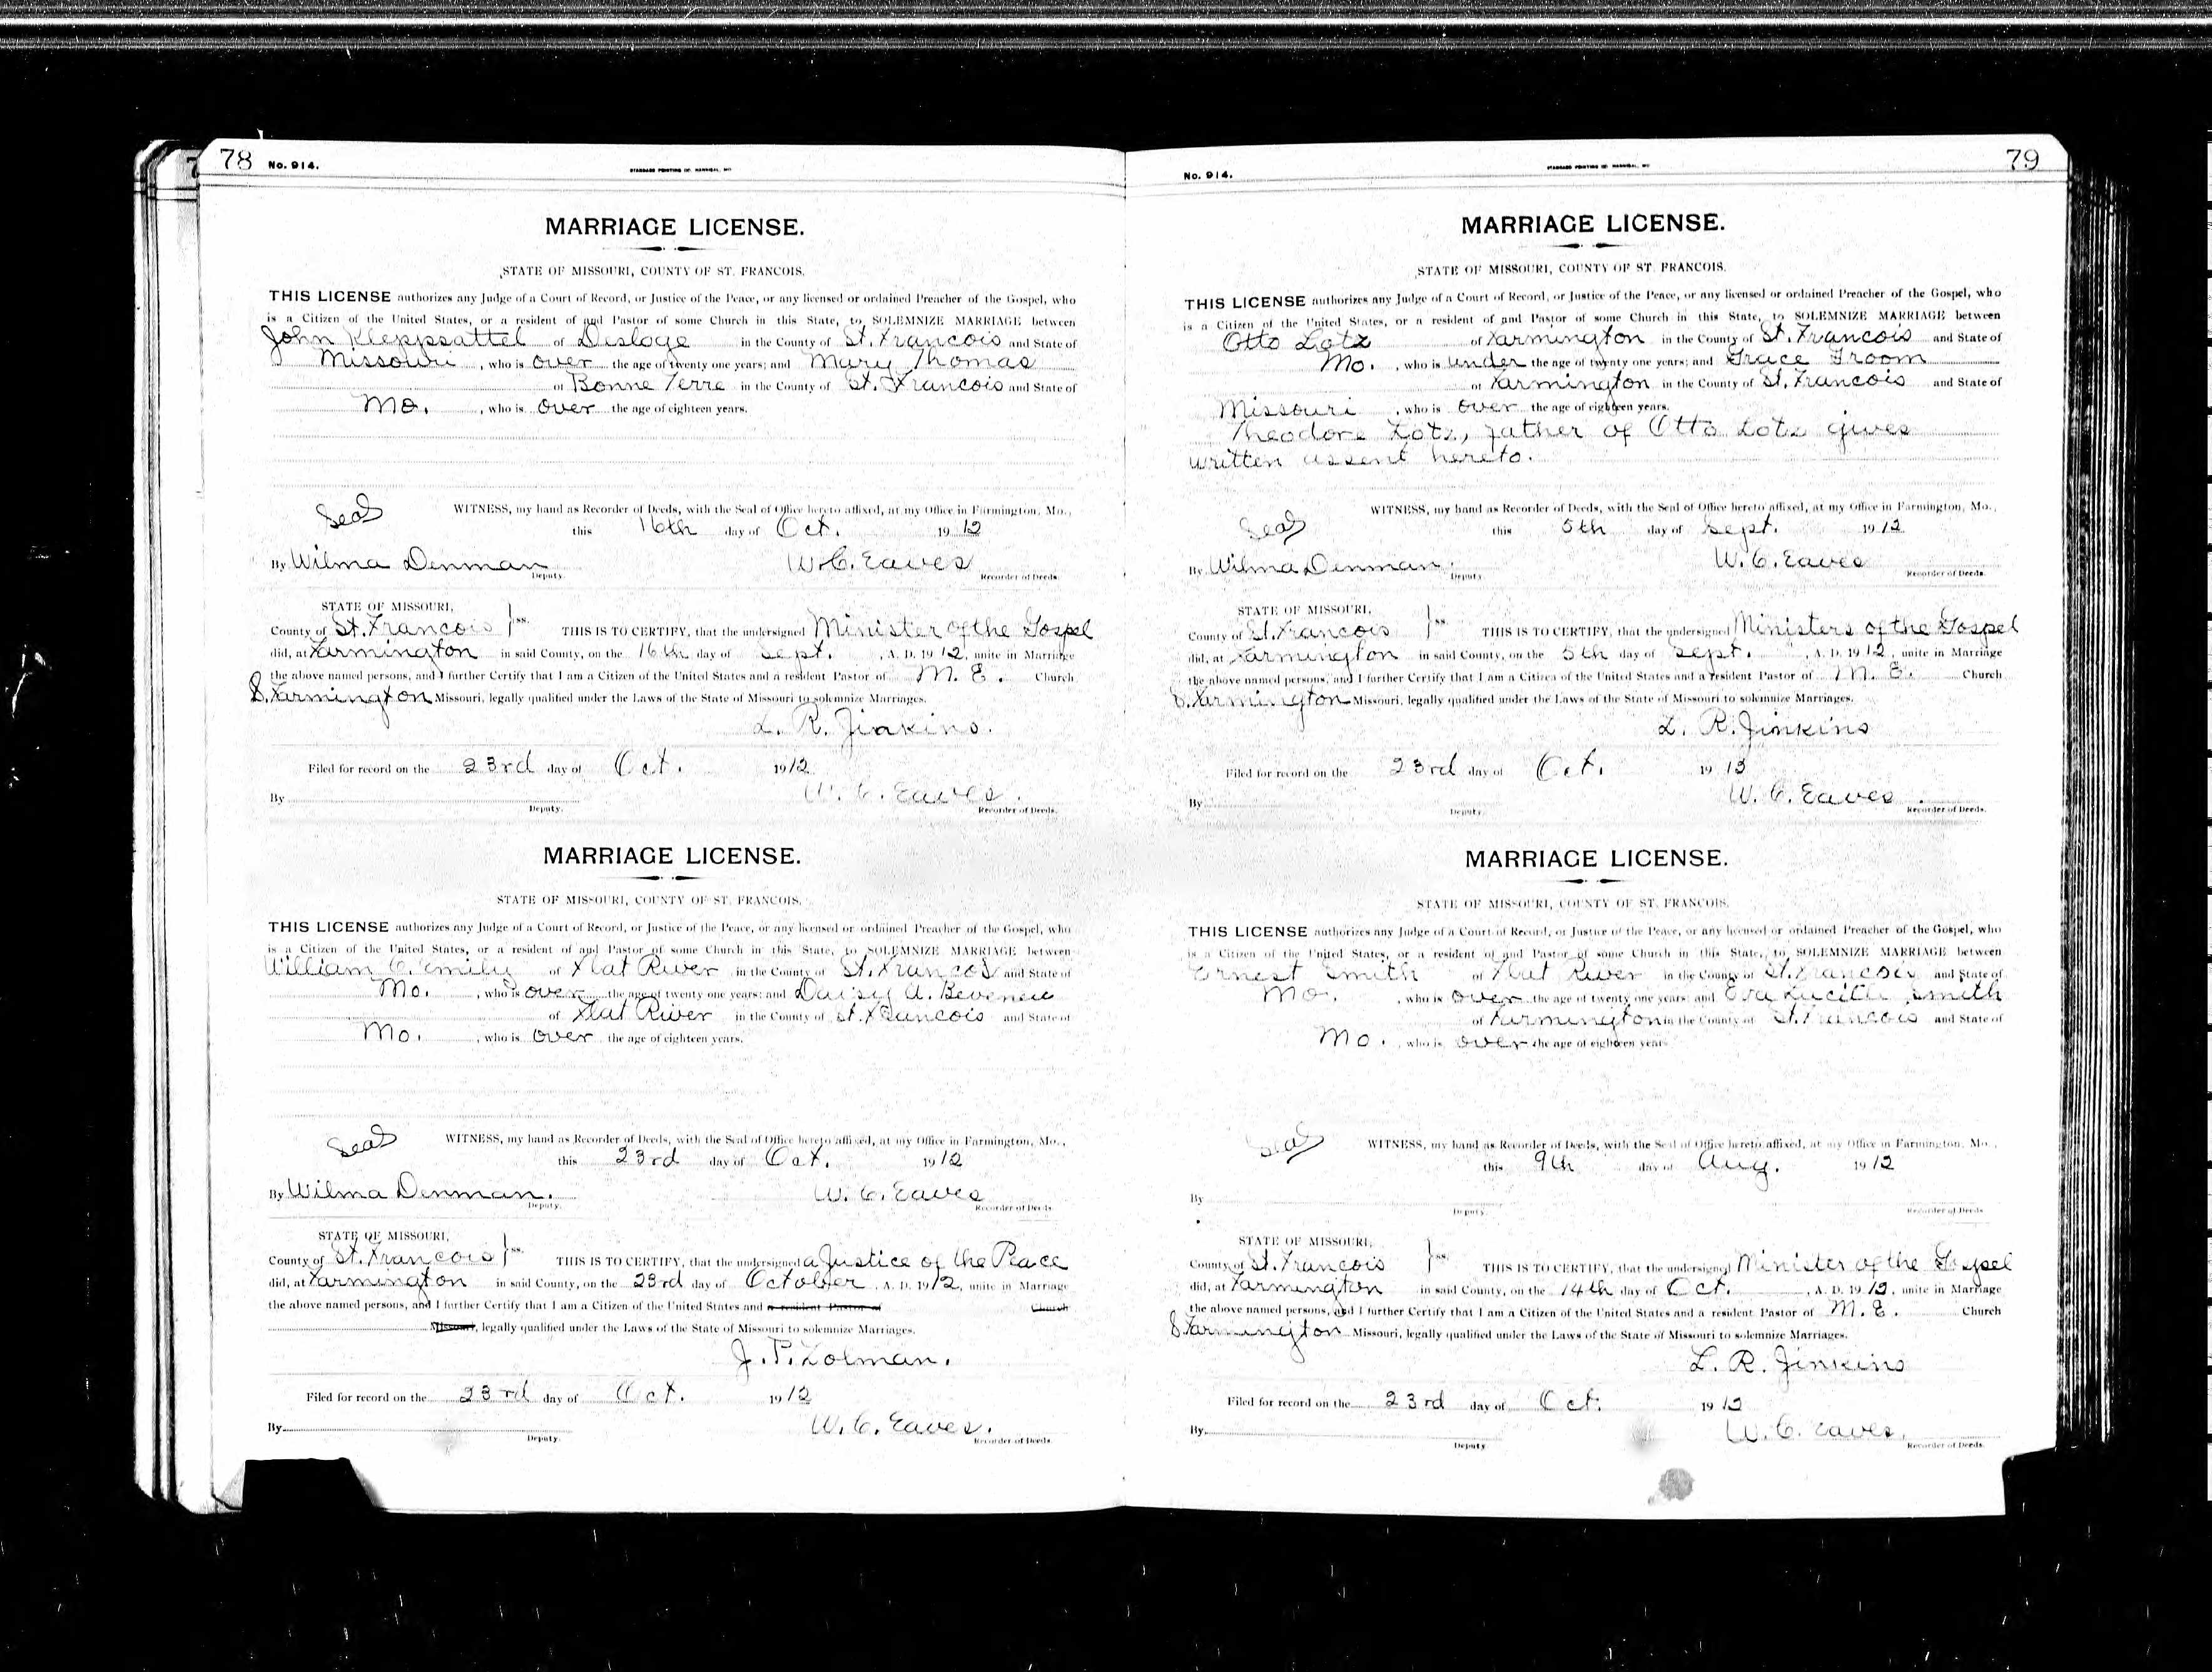 78 No. 914.
STANDARD PRINTING CO. HANNIBAL, MO
MARRIAGE LICENSE.
STATE OF MISSOURI, COUNTY OF ST. FRANCOIS.
THIS LICENSE authorizes any Judge of a Court of Record, or Justice of the Peace, or any licensed or ordained Preacher of the Gospel, who
is a Citizen of the United States, or a resident of and Pastor of some Church in this State, to SOLEMNIZE MARRIAGE between
John Kleppsattel of Desloge in the County of St. Francois and State of
Missouri, who is over the age of twenty one years; and Mary Thomas
of Bonne Terre in the County of St. Francois and State of
Mo., who is over the age of eighteen years.
Seal WITNESS, my hand as Recorder of Deeds, with the Seal of Office hereto affixed, at my Office in Farmington, Mo.,
this 16th day of Oct. 1912
By Wilma Denman W. C. Eaves
Deputy. Recorder of Deeds.
STATE OF MISSOURI,
County of St. Francois } ss. THIS IS TO CERTIFY, that the undersigned Minister of the Gospel
did, at Farmington in said County, on the 16th day of Sept., A. D. 1912, unite in Marriage
the above named persons, and I further Certify that I am a Citizen of the United States and a resident Pastor of M. E. Church
S. Farmington Missouri, legally qualified under the Laws of the State of Missouri to solemnize Marriages.
L. R. Jinkins.
Filed for record on the 23rd day of Oct. 1912
By W. C. Eaves.
Deputy. Recorder of Deeds.
MARRIAGE LICENSE.
STATE OF MISSOURI, COUNTY OF ST. FRANCOIS.
THIS LICENSE authorizes any Judge of a Court of Record, or Justice of the Peace, or any licensed or ordained Preacher of the Gospel, who
is a Citizen of the United States, or a resident of and Pastor of some Church in this State, to SOLEMNIZE MARRIAGE between
William C. Emily of Flat River in the County of St. Francois and State of
Mo., who is over the age of twenty one years; and Daisy A.
of Flat River in the County of St. Francois and State of
Mo., who is over the age of eighteen years.
Seal WITNESS, my hand as Recorder of Deeds, with the Seal of Office hereto affixed, at my Office in Farmington, Mo.,
this 23rd day of Oct. 1912
By Wilma Denman. W. C. Eaves
Deputy. Recorder of Deeds
STATE OF MISSOURI,
County of St. Francois } ss. THIS IS TO CERTIFY, that the undersigned a Justice of the Peace
did, at Farmington in said County, on the 23rd day of October, A. D. 1912, unite in Marriage
the above named persons, and I further Certify that I am a Citizen of the United States and a resident Pastor of Church
Missouri, legally qualified under the Laws of the State of Missouri to solemnize Marriages.
J. P. Zolman.
Filed for record on the 23rd day of Oct. 1912
By W. C. Eaves.
Deputy. Recorder of Deeds.
No. 914. STANDARD PRINTING CO. HANNIBAL, MO 79
MARRIAGE LICENSE.
STATE OF MISSOURI, COUNTY OF ST. FRANCOIS.
THIS LICENSE authorizes any Judge of a Court of Record, or Justice of the Peace, or any licensed or ordained Preacher of the Gospel, who
is a Citizen of the United States, or a resident of and Pastor of some Church in this State, to SOLEMNIZE MARRIAGE between
Otto Lotz of Farmington in the County of St. Francois and State of
Mo., who is under the age of twenty one years; and Grace Groom
of Farmington in the County of St. Francois and State of
Missouri, who is over the age of eighteen years.
Theodore Lotz, father of Otto Lotz gives
written assent hereto.
Seal WITNESS, my hand as Recorder of Deeds, with the Seal of Office hereto affixed, at my Office in Farmington, Mo.,
this 5th day of Sept. 1912
By Wilma Denman. W. C. Eaves
Deputy Recorder of Deeds.
STATE OF MISSOURI,
County of St. Francois } ss. THIS IS TO CERTIFY, that the undersigned Ministers of the Gospel
did, at Farmington in said County, on the 5th day of Sept., A. D. 1912, unite in Marriage
the above named persons, and I further Certify that I am a Citizen of the United States and a resident Pastor of M. E. Church
S. Farmington Missouri, legally qualified under the Laws of the State of Missouri to solemnize Marriages.
L. R. Jinkins
Filed for record on the 23rd day of Oct. 1912
By W. C. Eaves.
Deputy. Recorder of Deeds.
MARRIAGE LICENSE.
STATE OF MISSOURI, COUNTY OF ST. FRANCOIS.
THIS LICENSE authorizes any Judge of a Court of Record, or Justice of the Peace, or any licensed or ordained Preacher of the Gospel, who
is a Citizen of the United States, or a resident of and Pastor of some Church in this State, to SOLEMNIZE MARRIAGE between
Ernest Smith of Flat River in the County of St. Francois and State of
Mo., who is over the age of twenty one years; and Eva Lucille Smith
of Farmington in the County of St. Francois and State of
Mo., who is over the age of eighteen years
Seal WITNESS, my hand as Recorder of Deeds, with the Seal of Office hereto affixed, at my Office in Farmington, Mo.,
this 9th day of Aug. 1912
By
Deputy. Recorder of Deeds
STATE OF MISSOURI,
County of St. Francois } ss. THIS IS TO CERTIFY, that the undersigned Minister of the Gospel
did, at Farmington in said County, on the 14th day of Oct., A. D. 1912, unite in Marriage
the above named persons, and I further Certify that I am a Citizen of the United States and a resident Pastor of M. E. Church
S. Farmington Missouri, legally qualified under the Laws of the State of Missouri to solemnize Marriages.
L. R. Jinkins
Filed for record on the 23rd day of Oct. 1912
By W. C. Eaves.
Deputy Recorder of Deeds.